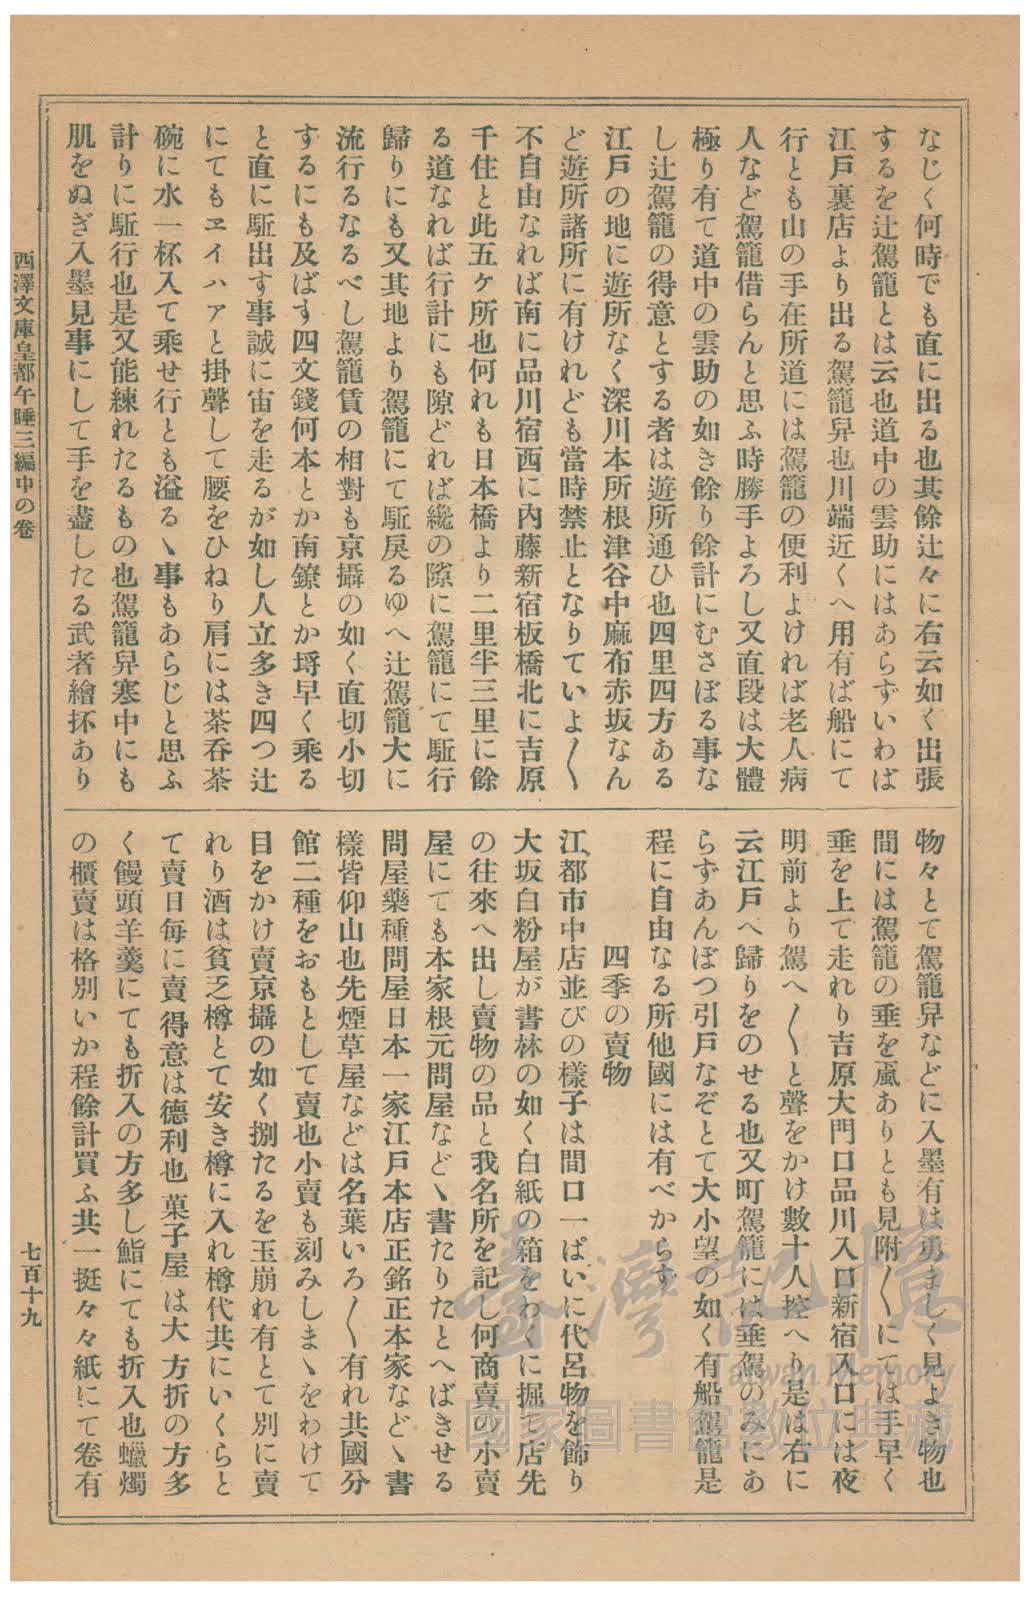 なじく何時でも直に出る也其餘辻々に右云如く出張
するを辻駕籠とは云也道中の雲助にはあらずいわば
江戸裏店より出る駕籠舁也川端近くへ用有ば船にて
行とも山の手在所道には駕籠の便利よければ老人病
人など駕籠借らんと思ふ時勝手よろし又直段は大體
極り有て道中の雲助の如き餘り餘計にむさぼる事な
し辻駕籠の得意とする者は遊所通ひ也四里四方ある
江戸の地に遊所なく深川本所根津谷中麻布赤坂なん
ど遊所諸所に有けれども當時禁止となりていよ〱
不自由なれば南に品川宿西に内藤新宿板橋北に吉原
千住と此五ケ所也何れも日本橋より二里半三里に餘
る道なれば行計にも隙どれば纔の隙に駕籠にて駈行
歸りにも又其地より駕籠にて駈戻るゆへ辻駕籠大に
流行るなるべし駕籠賃の相對も京攝の如く直切小切
するにも及ばす四文錢何本とか南鐐とか埒早く乘る
と直に駈出す事誠に宙を走るが如し人立多き四つ辻
にてもヱイハアと掛聲して腰をひねり肩には茶呑茶
碗に水一杯入て乘せ行とも溢るヽ事もあらじと思ふ
計りに駈行也是又能練れたるもの也駕籠舁寒中にも
肌をぬぎ入墨見事にして手を盡したる武者繪抔あり
物々とて駕籠舁などに入墨有は勇ましく見よき物也
間には駕籠の垂を颪ありとも見附〱にては手早く
垂を上て走れり吉原大門口品川入口新宿入口には夜
明前より駕へ〱と聲をかけ數十人控へり是は右に
云江戸へ歸りをのせる也又町駕籠には垂駕のみにあ
らずあんぽつ引戸なぞとて大小望の如く有船駕籠是
程に自由なる所他國には有べからず
四季の賣物
江都市中店並びの樣子は間口一ぱいに代呂物を飾り
大坂白粉屋が書林の如く白紙の箱をわくに掘て店先
の往來へ出し賣物の品と我名所を記し何商賣の小賣
屋にても本家根元問屋などヽ書たりたとへばきせる
問屋藥種問屋日本一家江戸本店正銘正本家などヽ書
樣皆仰山也先煙草屋などは名葉いろ〱有れ共國分
館二種をおもとして賣也小賣も刻みしまヽをわけて
目をかけ賣京攝の如く捌たるを玉崩れ有とて別に賣
れり酒は貧乏樽とて安き樽に入れ樽代共にいくらと
て賣日每に賣得意は德利也菓子屋は大方折の方多
く饅頭羊羹にても折入の方多し鮨にても折入也蠟燭
の櫃賣は格別いか程餘計買ふ共一挺々々紙にて卷有
西澤文庫皇都午睡三編中の卷
七百十九
臺灣記憶
Taiwan Memory
國家圖書館數位典藏